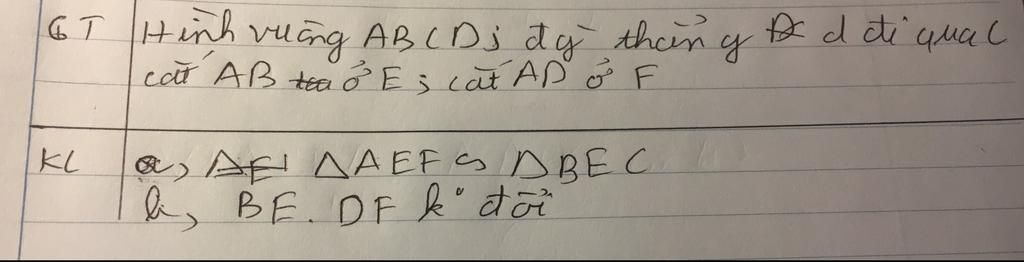 GT Hình vuông ABCD; đg thẳng d đi qua C
cắt AB ở E; cắt AD ở F
KL a, ΔAEF ∽ ΔBEC
b, BE. DF k° đổi